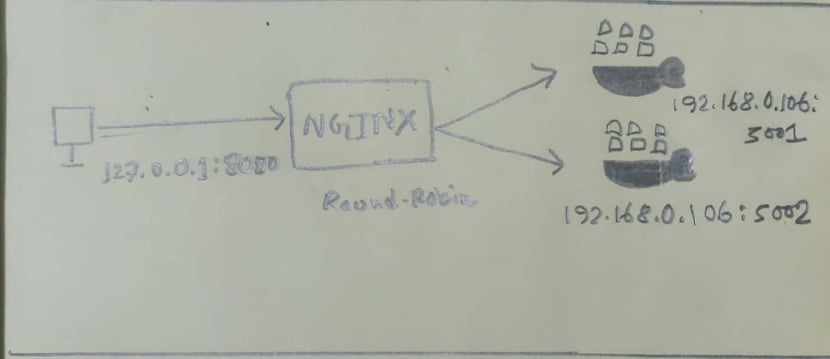 127.0.0.1:8080
NGINX
Round-Robin
192.168.0.106:
5001
192.168.0.106:5002